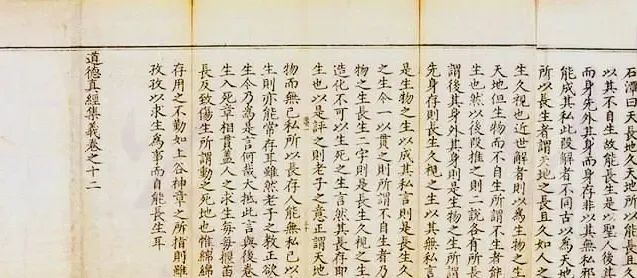 石潭曰天長地久天地所
以其不自生故能長生是以聖人後其
而身先外其身而身存非以其無私
能成其私此段解者不同古以為天地
所以長生者謂天地之長且久如人
生久視也近世解者則以為生物之生
天地但生物而不自生所謂不生者能
生也然以後段推之則二說各有所
謂後其身外其身則是生物之生所謂
先身存則長生久視之生以其無私言
是生物之生以成其私言則是長生久
之生今一以貫之則所謂不自生者乃
物之生長生二字則是長生久視之
造化不可以生死之生言然其長存即
生也以是評之則老子之意正謂天地
物而無己私所以長存人能無私己以
生則亦能常存耳雖然老子之教正欲
生今乃為是言何哉大抵此言與後卷
生入死章相貫蓋人之求生每每揠苗
長反致傷生所謂動之死地也惟綿綿
存用之不動如上谷神章之所指則雖
孜孜以求生為事而自能長生耳
道德真經集義卷之十二